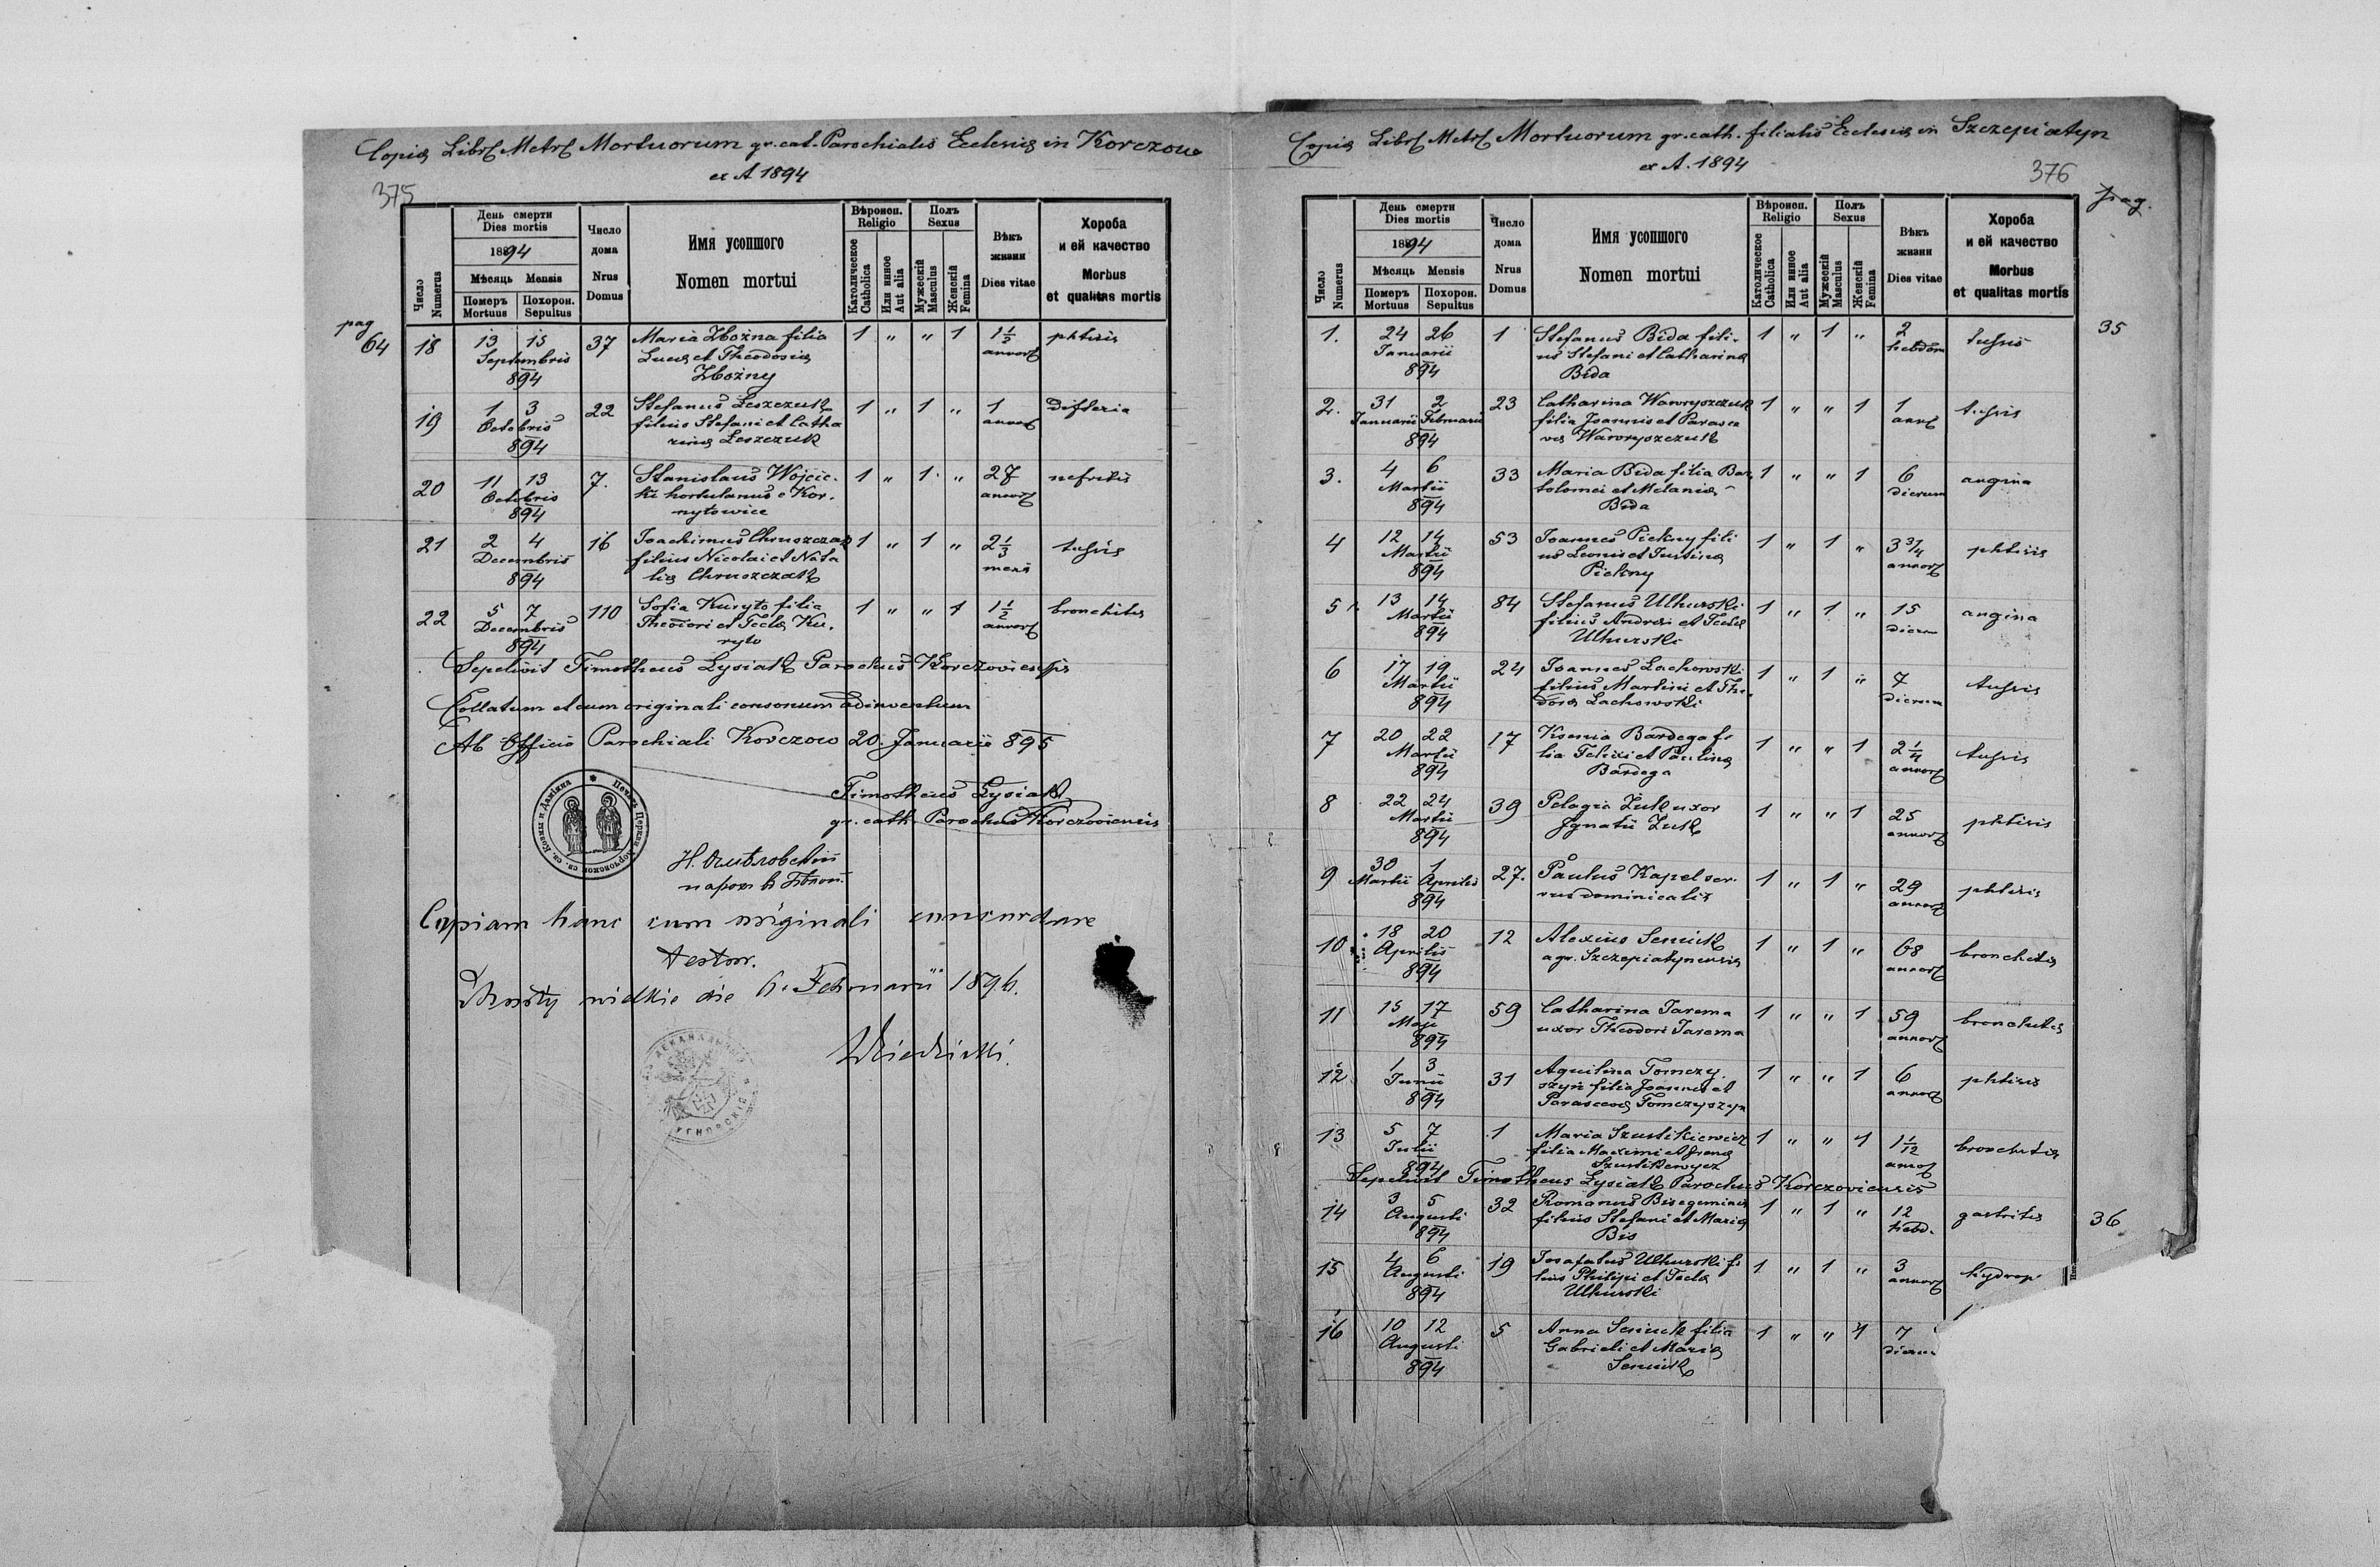 Copia Libr. Metr. Mortuorum gr. cat. Parochialis Ecclesiae in Korczow
ex A 1894
375
День смерти
Dies mortis
1894
Мѣсяць Mensis
Померъ Похорон.
Mortuus Sepultus
Число
Numerus
Число
дома
Nrus
Domus
Имя усопшого
Nomen mortui
Вѣроисп.
Religio
Католическое
Catholica
Или инное
Aut alia
Полъ
Sexus
Мужескій
Masculus
Женскій
Femina
Вѣкъ
жизни
Dies vitae
Хороба
и ей качество
Morbus
et qualitas mortis
pag
64
18 13 15 37 Maria Zbożna filia 1 " " 1 1 1/2 phtisis
Septembris Lucae et Theodosiae annor
894 Zbożny
19 1 3 22 Stefanus Leszczuk 1 " 1 " 1 difteria
Octobris filius Stefani et Catha
894 rinae Leszczuk
20 11 13 7. Stanislaus Wojcic- 1 " 1 " 27 nefritis
Octobris ki hortulanus e Kor- annor
894 nytowice
21 2 4 16 Joachimus Chruszczak 1 " 1 " 2 1/3 tussis
Decembris filius Nicolai et Nata mens
894 liae Chruszczak
22 5 7 110 Sofia Kuryło filia 1 " " 1 1 1/2 bronchitis
Decembris Theodori et Teclae Ku- annor
894 ryło
Sepelivit Timotheus Łysiak Parochus Korczoviensis
Collatum et cum originali consonum adinventum
Ab Officio Parochiali Korczow 20. Januarii 895
Timotheus Łysiak
gr. cath. Parochus Korczoviensis
Copiam hanc cum originali concordare
testor.
Mosty wielkie die 6. Februarii 1896.
Copia Libr. Metr. Mortuorum gr. cath. filialis Ecclesiae in Szczepiatyn
ex A. 1894
376
pag.
День смерти
Dies mortis
1894
Мѣсяць Mensis
Померъ Похорон.
Mortuus Sepultus
Число
Numerus
Число
дома
Nrus
Domus
Имя усопшого
Nomen mortui
Вѣроисп.
Religio
Католическое
Catholica
Или инное
Aut alia
Полъ
Sexus
Мужескій
Masculus
Женскій
Femina
Вѣкъ
жизни
Dies vitae
Хороба
и ей качество
Morbus
et qualitas mortis
1. 24 26 1 Stefanus Bida fili- 1 " 1 " 2 tussis 35
Januarii us Stefani et Catharinae hebdom
894 Bida
2. 31 2 23 Catharina Wawryszczuk 1 " " 1 1 tussis
Januarii Februarii filia Joannis et Parasce
894 vae Wawryszczuk
3. 4 6 33 Maria Bida filia Bar 1 " " 1 6 angina
Martii tolomei et Melaniae dierum
894 Bida
4 12 14 53 Joannes Piekny fili 1 " 1 " 3 3/4 phtisis
Martii us Leonis et Justinae annor
894 Piekny
5 13 14 84 Stefanus Uhurski 1 " 1 " 15 angina
Martii filius Andrei et Teclae dierum
894 Uhurski
6 17 19 24 Joannes Lachowski 1 " 1 " 7 tussis
Martii filius Martini et The dierum
894 dorae Lachowski
7 20 22 17 Ksenia Bardega fi 1 " " 1 2 1/4 tussis
Martii lia Felixi et Paulinae annor
894 Bardega
8 22 24 39 Pelagia Żuk uxor 1 " " 1 25 phtisis
Martii Ignatii Żuk annor
894
9 30 1 27. Paulus Kapel ser- 1 " 1 " 29 phtisis
Martii Aprilis vus dominicalis annor
894
10 18 20 12 Alexius Seniuk 1 " 1 " 68 bronchitis
Aprilis agr. Szczepiatynensis annor
894
11 15 17 59 Catharina Jarema 1 " " 1 59 bronchitis
Maji uxor Theodori Jarema annor
894
12 1 3 31 Aquilina Tomczy 1 " " 1 6 phtisis
Junii szyn filia Joannis et annor
894 Parascevae Tomczyszyn
13 5 7 1 Maria Szustkiewicz 1 " " 1 1 1/12 bronchitis
Julii filia Maximi et Irenae
894
Sepelivit Timotheus Łysiak Parochus Korczoviensis
14 3 5 32 Romanus Bis geminus 1 " 1 " 12 gastritis 36
Augusti filius Stefani et Mariae hebd.
894 Bis
15 4 6 19 Josafatus Uhurski fi 1 " 1 " 3 hydrop
Augusti lius Philipi et Teclae annor
894 Uhurski
16 10 12 5 Anna Seniuk filia 1 " " 1 7
Augusti Gabrieli et Mariae
894 Seniuk